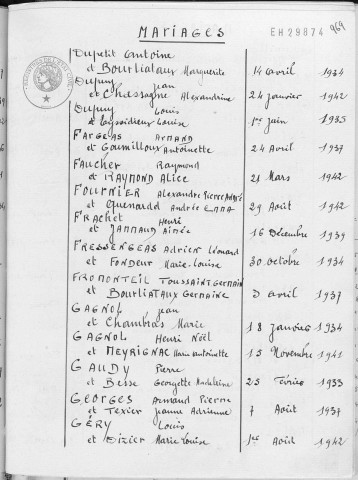 MARIAGES
EH29874
969
Dupetit Antoine
et Bourliataux Marguerite 14 avril 1934
Dupuy Jean
et Chassagne Alexandrine 24 janvier 1942
Dupuy Louis
et Louise 1er juin 1935
FARGEAS ARMAND
et Goumilloux Antoinette 24 Avril 1937
FAUCHER Raymond
et RAYMOND ALICE 21 Mars 1942
FOURNIER Alexandre Pierre André
et Quenardd Andrée EMMA 29 Août 1942
FRACHET Henri
et JANNAUD Aimée 16 Décembre 1939
FRESSENGEAS Adrien Léonard
et FONDEUR Marie-Louise 30 octobre 1934
FROMONTEIL TOUSSAINT GERMAIN
et BOURLIATAUX GERMAINE 3 avril 1937
GAGNOL Jean
et Chambras Marie 18 janvier 1934
GAGNOL Henri Noël
et MEYRIGNAC Marie Antoinette 15 Novembre 1941
GAUDY Pierre
et Besse Georgette Madeleine 25 Février 1933
GEORGES Armand Pierre
et Texier Jeanne Adrienne 7 Août 1937
GÉRY Louis
et Dizier Marie Louise 1er Août 1942